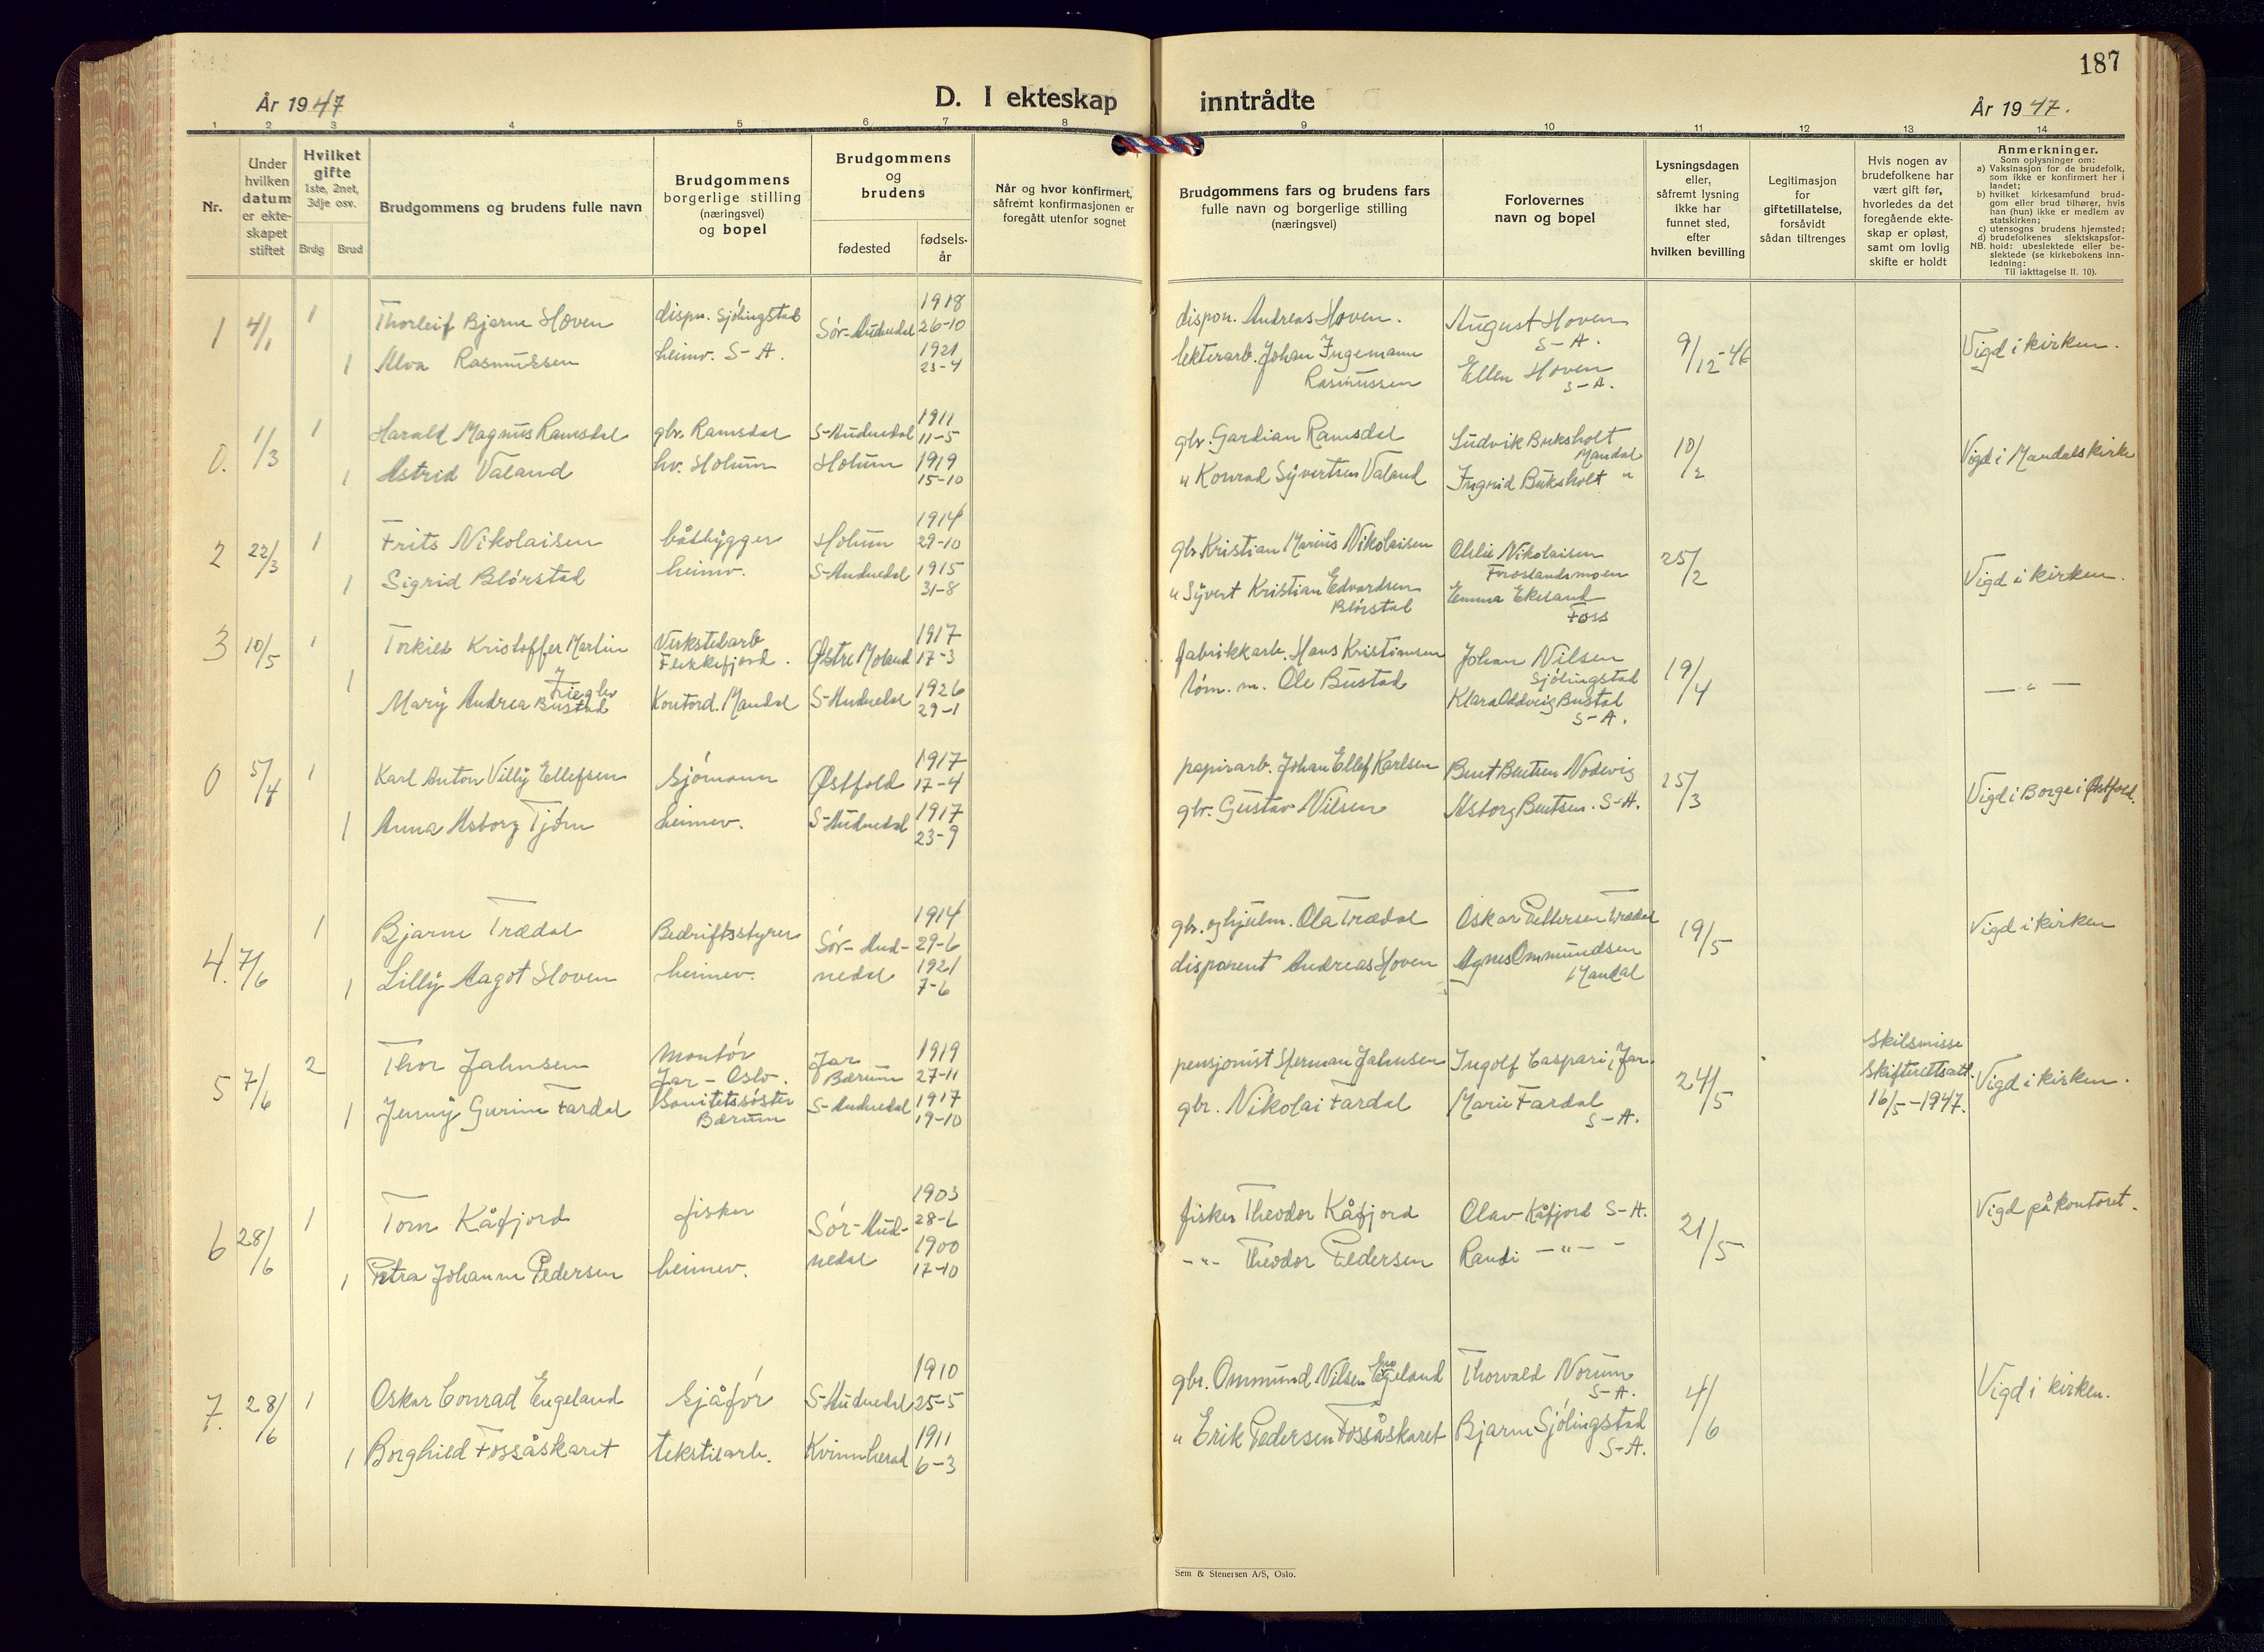 187
År 1947
D. I ekteskap inntrådte
År 1947.
1 2 3 4 5 6 7 8 9 10 11 12 13 14
Nr.
Under hvilken datum er ekteskapet stiftet
Hvilket gifte
1ste, 2net, 3dje osv.
Brdg Brud
Brudgommens og brudens fulle navn
Brudgommens borgerlige stilling (næringsvei) og bopel
Brudgommens og brudens
fødested
fødselsår
Når og hvor konfirmert, såfremt konfirmasjonen er foregått utenfor sognet
Brudgommens fars og brudens fars fulle navn og borgerlige stilling (næringsvei)
Forlovernes navn og bopel
Lysningsdagen eller, såfremt lysning ikke har funnet sted, efter hvilken bevilling
Legitimasjon for giftetillatelse, forsåvidt sådan tiltrenges
Hvis nogen av brudefolkene har vært gift før, hvorledes da det foregående ekteskap er opløst, samt om lovlig skifte er holdt
Anmerkninger.
Som oplysninger om:
a) Vaksinasjon for de brudefolk, som ikke er konfirmert her i landet;
b) hvilket kirkesamfund brudgom eller brud tilhører, hvis han (hun) ikke er medlem av statskirken;
c) utensogns brudens hjemsted;
d) brudefolkenes slektskapsforhold: ubeslektede eller beslektede (se kirkebokens innledning:
NB. Til iakttagelse II. 10).
1 4/1 1 Thorleif Bjarne Hoven dispn. Sjölingstad Sör-Audnedal 1918 26-10 dispon. Andreas Hoven. August Hoven S-A. 9/12-46 Vigd i kirken.
1 Alva Rasmussen heimv. S-A. 1921 23-4 Johan Ingemann Rasmussen Ellen Hoven S-A.
0. 1/3 1 Harald Magnus Ramsdal gbr. Ramsdal S-Audnedal 1911 11-5 gbr. Gardian Ramsdal Ludvik Buksholt Mandal 10/2 Vigd i Mandals kirke
1 Astrid Valand hv. Holum Holum 1919 15-10 " Konrad Syvertsen Valand Ingrid Buksholt "
2 22/3 1 Frits Nikolaisen båtbygger Holum 1914 29-10 gbr Kristian Marius Nikolaisen Nikolaisen Froslandsmoen 25/2 Vigd i kirken.
1 Sigrid Blörstad heimv. S-Audnedal 1915 31-8 " Syvert Kristian Edvardsen Blörstad Emma Ekeland Foss
3 10/5 1 Torkild Kristoffer Martin Ziegler Verkstedarb Flekkefjord. Østre Moland 17-3 1917 fabrikkarb. Hans Kristiansen Johan Nilsen Sjölingstad 19/4 — " —
1 Mary Andrea Bustad Kontord. Mandal S-Audnedal 1926 29-1 töm. m. Ole Bustad Klara Oddveig Bustad S-A.
0 5/4 1 Karl Anton Villy Ellefsen Sjömann Østfold 1917 17-4 papirarb. Johan Ellef Karlsen Bent Bentsen Nodevig 25/3 Vigd i Borge i Østfold.
1 Anna Asborg Tjörn heimev. S-Audnedal 1917 23-9 gbr. Gustav Nilsen Asborg Bentsen. S-A.
4. 7/6 1 Bjarne Trædal Bedriftsstyrer Sör-Audnedal 1914 29-6 gbr. og hjulm. Ola Trædal Oskar Pettersen Trædal 19/5 Vigd i kirken
1 Lilly Aagot Hoven heimev. 1921 7-6 disponent Andreas Hoven Agnes Ommundsen Mandal
5 7/6 2 Thor Jahnsen Montör Jar - Oslo. Jar Bærum 1919 27-11 pensjonist Herman Jahnsen Ingolf Caspari, Jar. 24/5 Skilsmisse Skifterettsatt. 16/5-1947. Vigd i kirken.
1 Jenny Gurine Fardal Sanitetssöster Bærum S-Audnedal 1917 19-10 gbr. Nikolai Fardal Marie Fardal S-A.
6 28/6 1 Tom Kåfjord fisker Sör-Audnedal 1903 28-6 fisker Theodor Kåfjord Olav Kåfjord S-A. 21/5 Vigd på kontoret.
1 Petra Johanne Pedersen heimev. 1900 17-10 -"- Theodor Pedersen Randi -"-
7. 28/6 1 Oskar Conrad Engeland Sjåför S-Audnedal 1910 25-5 gbr. Ommund Nilsen Engeland Thorvald Norum S-A. 4/6 Vigd i kirken.
1 Borghild Fossåskaret tekstilarb. Kvinnherad 1911 6-3 " Erik Pedersen Fossåskaret Bjarne Sjölingstad S-A.
Sem & Stenersen A/S, Oslo.